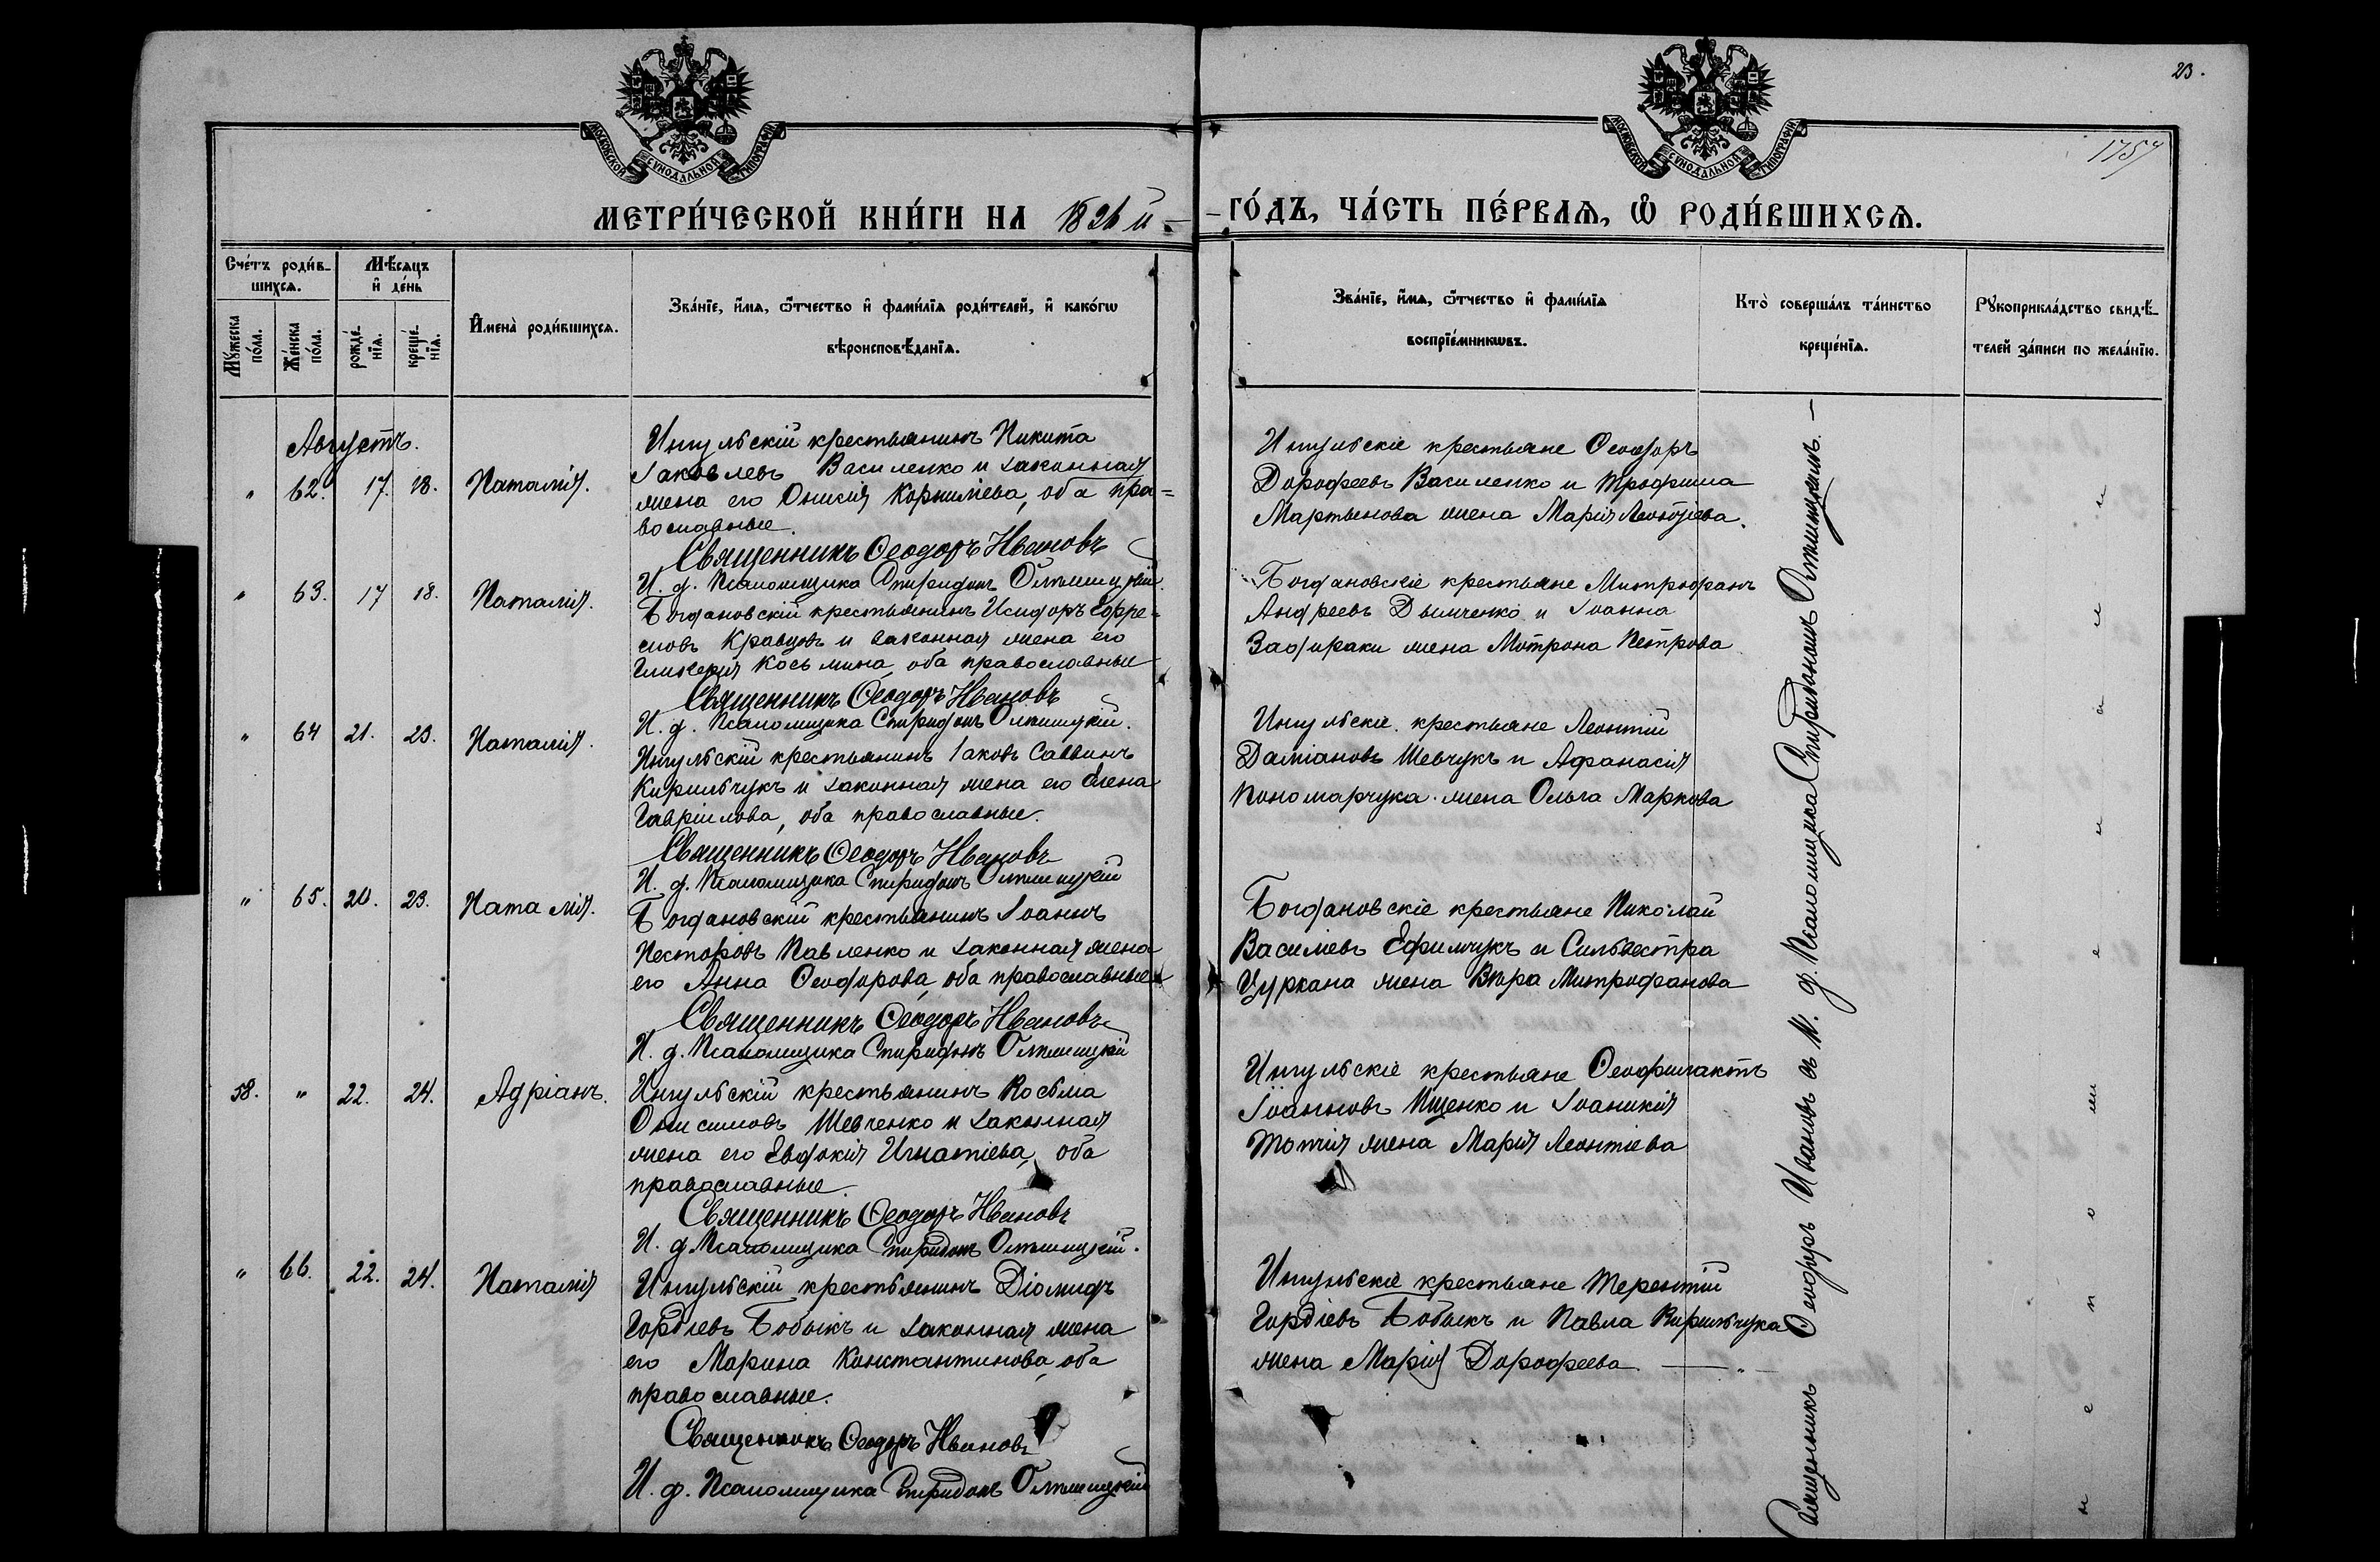 23.
1757
МОСКОВСКОЙ СѴНОДАЛЬНОЙ ТИПОГРАФІИ
МОСКОВСКОЙ СѴНОДАЛЬНОЙ ТИПОГРАФІИ
МЕТРИ́ЧЕСКОЙ КНИ́ГИ НА 1896 й
ГО́ДЪ, ЧА́СТЬ ПЕ́РВАѦ, Ѽ РОДИ́ВШИХСѦ.
Сче́тъ роди́в-
шихсѧ.
Мѣ́сѧцъ
и҆ де́нь
Мꙋ́жеска
по́ла.
Же́нска
по́ла.
рожде́-
нїѧ.
креще́-
нїѧ.
И҆мена̀ роди́вшихсѧ.
Зва́нїе, и҆́мѧ, ѻ҆́тчество и҆ фами́лїѧ роди́телей, и҆ како́гѡ
вѣроисповѣ́данїѧ.
Зва́нїе, и҆́мѧ, ѻ҆́тчество и҆ фами́лїѧ
воспрїе́мникѡвъ.
Кто̀ соверша́лъ та́инство
креще́нїѧ.
Рꙋкоприкла́дство свидѣ́-
телей за́писи по жела́нїю.
Августъ.
" 62. 17. 18. Наталія.
Ингульскій крестьянинъ Никита
Іаковлевъ Василенко и законная
жена его Онисія Корниліева, оба пра=
вославные.
Священникъ Ѳеодоръ Ивановъ
И. д. Псаломщика Спиридонъ
Ингульскіе крестьяне Ѳеодоръ
Дороѳеевъ Василенко и Трофима
Мартынова жена Марія
" 63. 17 18. Наталія.
Богдановскій крестьянинъ Исидоръ Ефре-
мовъ Кравцовъ и законная жена его
Гликерія Косьмина, оба православные
Священникъ Ѳеодоръ Ивановъ
И. д. Псаломщика Спиридонъ
Богдановскіе крестьяне Митрофанъ
Андреевъ Дымченко и Іоанна
жена Матрона Петрова
" 64 21. 23. Наталія.
Ингульскій крестьянинъ Іаковъ Саввинъ
Кирильчукъ и законная жена его Елена
Гавріилова, оба православные.
Священникъ Ѳеодоръ Ивановъ
И. д. Псаломщика Спиридонъ
Ингульскіе крестьяне Леонтій
Даміановъ Шевчукъ и Аѳанасія
Пономарчука жена Ольга Маркова
" 65. 20. 23. Наталія.
Богдановскій крестьянинъ Іоаннъ
Несторовъ Павленко и законная жена
его Анна Ѳеодорова, оба православные
Священникъ Ѳеодоръ Ивановъ
И. д. Псаломщика Спиридонъ
Богдановскіе крестьяне Николай
Василіевъ Ефимчукъ и Сильвестра
Цуркана жена Вѣра Митрофанова
58. " 22. 24. Адріанъ.
Ингульскій крестьянинъ Косьма
Онисимовъ Шевченко и законная
жена его Евдокія Игнатіева, оба
православные.
Священникъ Ѳеодоръ Ивановъ
И. д. Псаломщика Спиридонъ
Ингульскіе крестьяне Ѳеофилактъ
Іоанновъ Ищенко и Іоаникія
жена Марія Леонтіева
" 66. 22. 24. Наталія
Ингульскій крестьянинъ Діомидъ
Гордіевъ Бобыкъ и законная жена
его Марина Константинова, оба
православные.
Священникъ Ѳеодоръ Ивановъ
И. д. Псаломщика Спиридонъ
Ингульскіе крестьяне Терентій
Гордіевъ Бобыкъ и Павла Кирильчука
жена Марія Дороѳеева
Священникъ Ѳеодоръ Ивановъ съ И. д. Псаломщика Спиридономъ